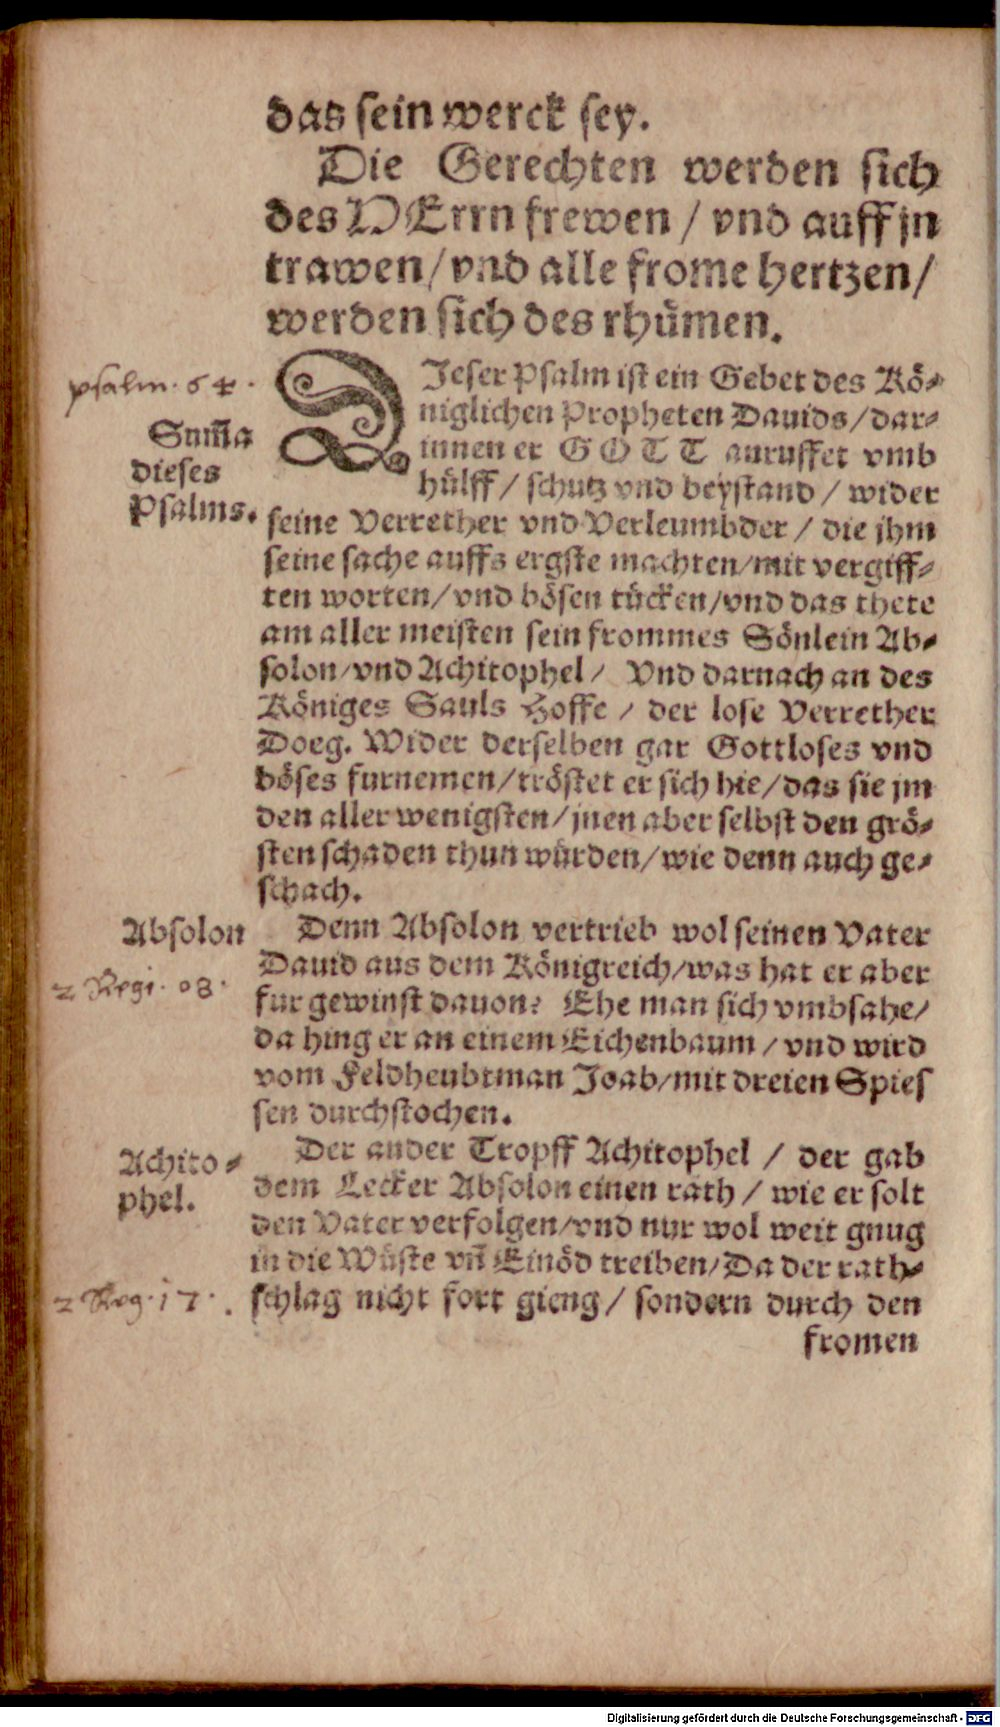 das sein werck sey.
Die Gerechten werden sich
des HErrn frewen / vnd auff jn
trawen / vnd alle frome hertzen /
werden sich des rhümen.
psalm. 64.
Sum̃a
dieses
Psalms.
DJeser Psalm ist ein Gebet des Kö-
niglichen Propheten Dauids / dar-
innen er GOTT anruffet vmb
hülff / schutz vnd beystand / wider
seine Verrether vnd Verleumbder / die jhm
seine sache auffs ergste machten / mit vergiff-
ten worten / vnd bösen tücken / vnd das thete
am aller meisten sein frommes Sönlein Ab-
solon / vnd Achitophel / Vnd darnach an des
Königes Sauls Hoffe / der lose Verrether
Doeg. Wider derselben gar Gottloses vnd
böses furnemen / tröstet er sich hie / das sie jm
den aller wenigsten / jnen aber selbst den grö-
sten schaden thun würden / wie denn auch ge-
schach.
Absolon
2 Regi. 08.
Denn Absolon vertrieb wol seinen Vater
Dauid aus dem Königreich / was hat er aber
fur gewinst dauon? Ehe man sich vmbsahe /
da hing er an einem Eichenbaum / vnd wird
vom Feldheubtman Joab / mit dreien Spies
sen durchstochen.
Achito-
phel.
2 Reg. 17.
Der ander Tropff Achitophel / der gab
dem Lecker Absolon einen rath / wie er solt
den Vater verfolgen / vnd nur wol weit gnug
in die Wüste vn̄ Einöd treiben / Da der rath-
schlag nicht fort gieng / sondern durch den
fromen
Digitalisierung gefördert durch die Deutsche Forschungsgemeinschaft - DFG